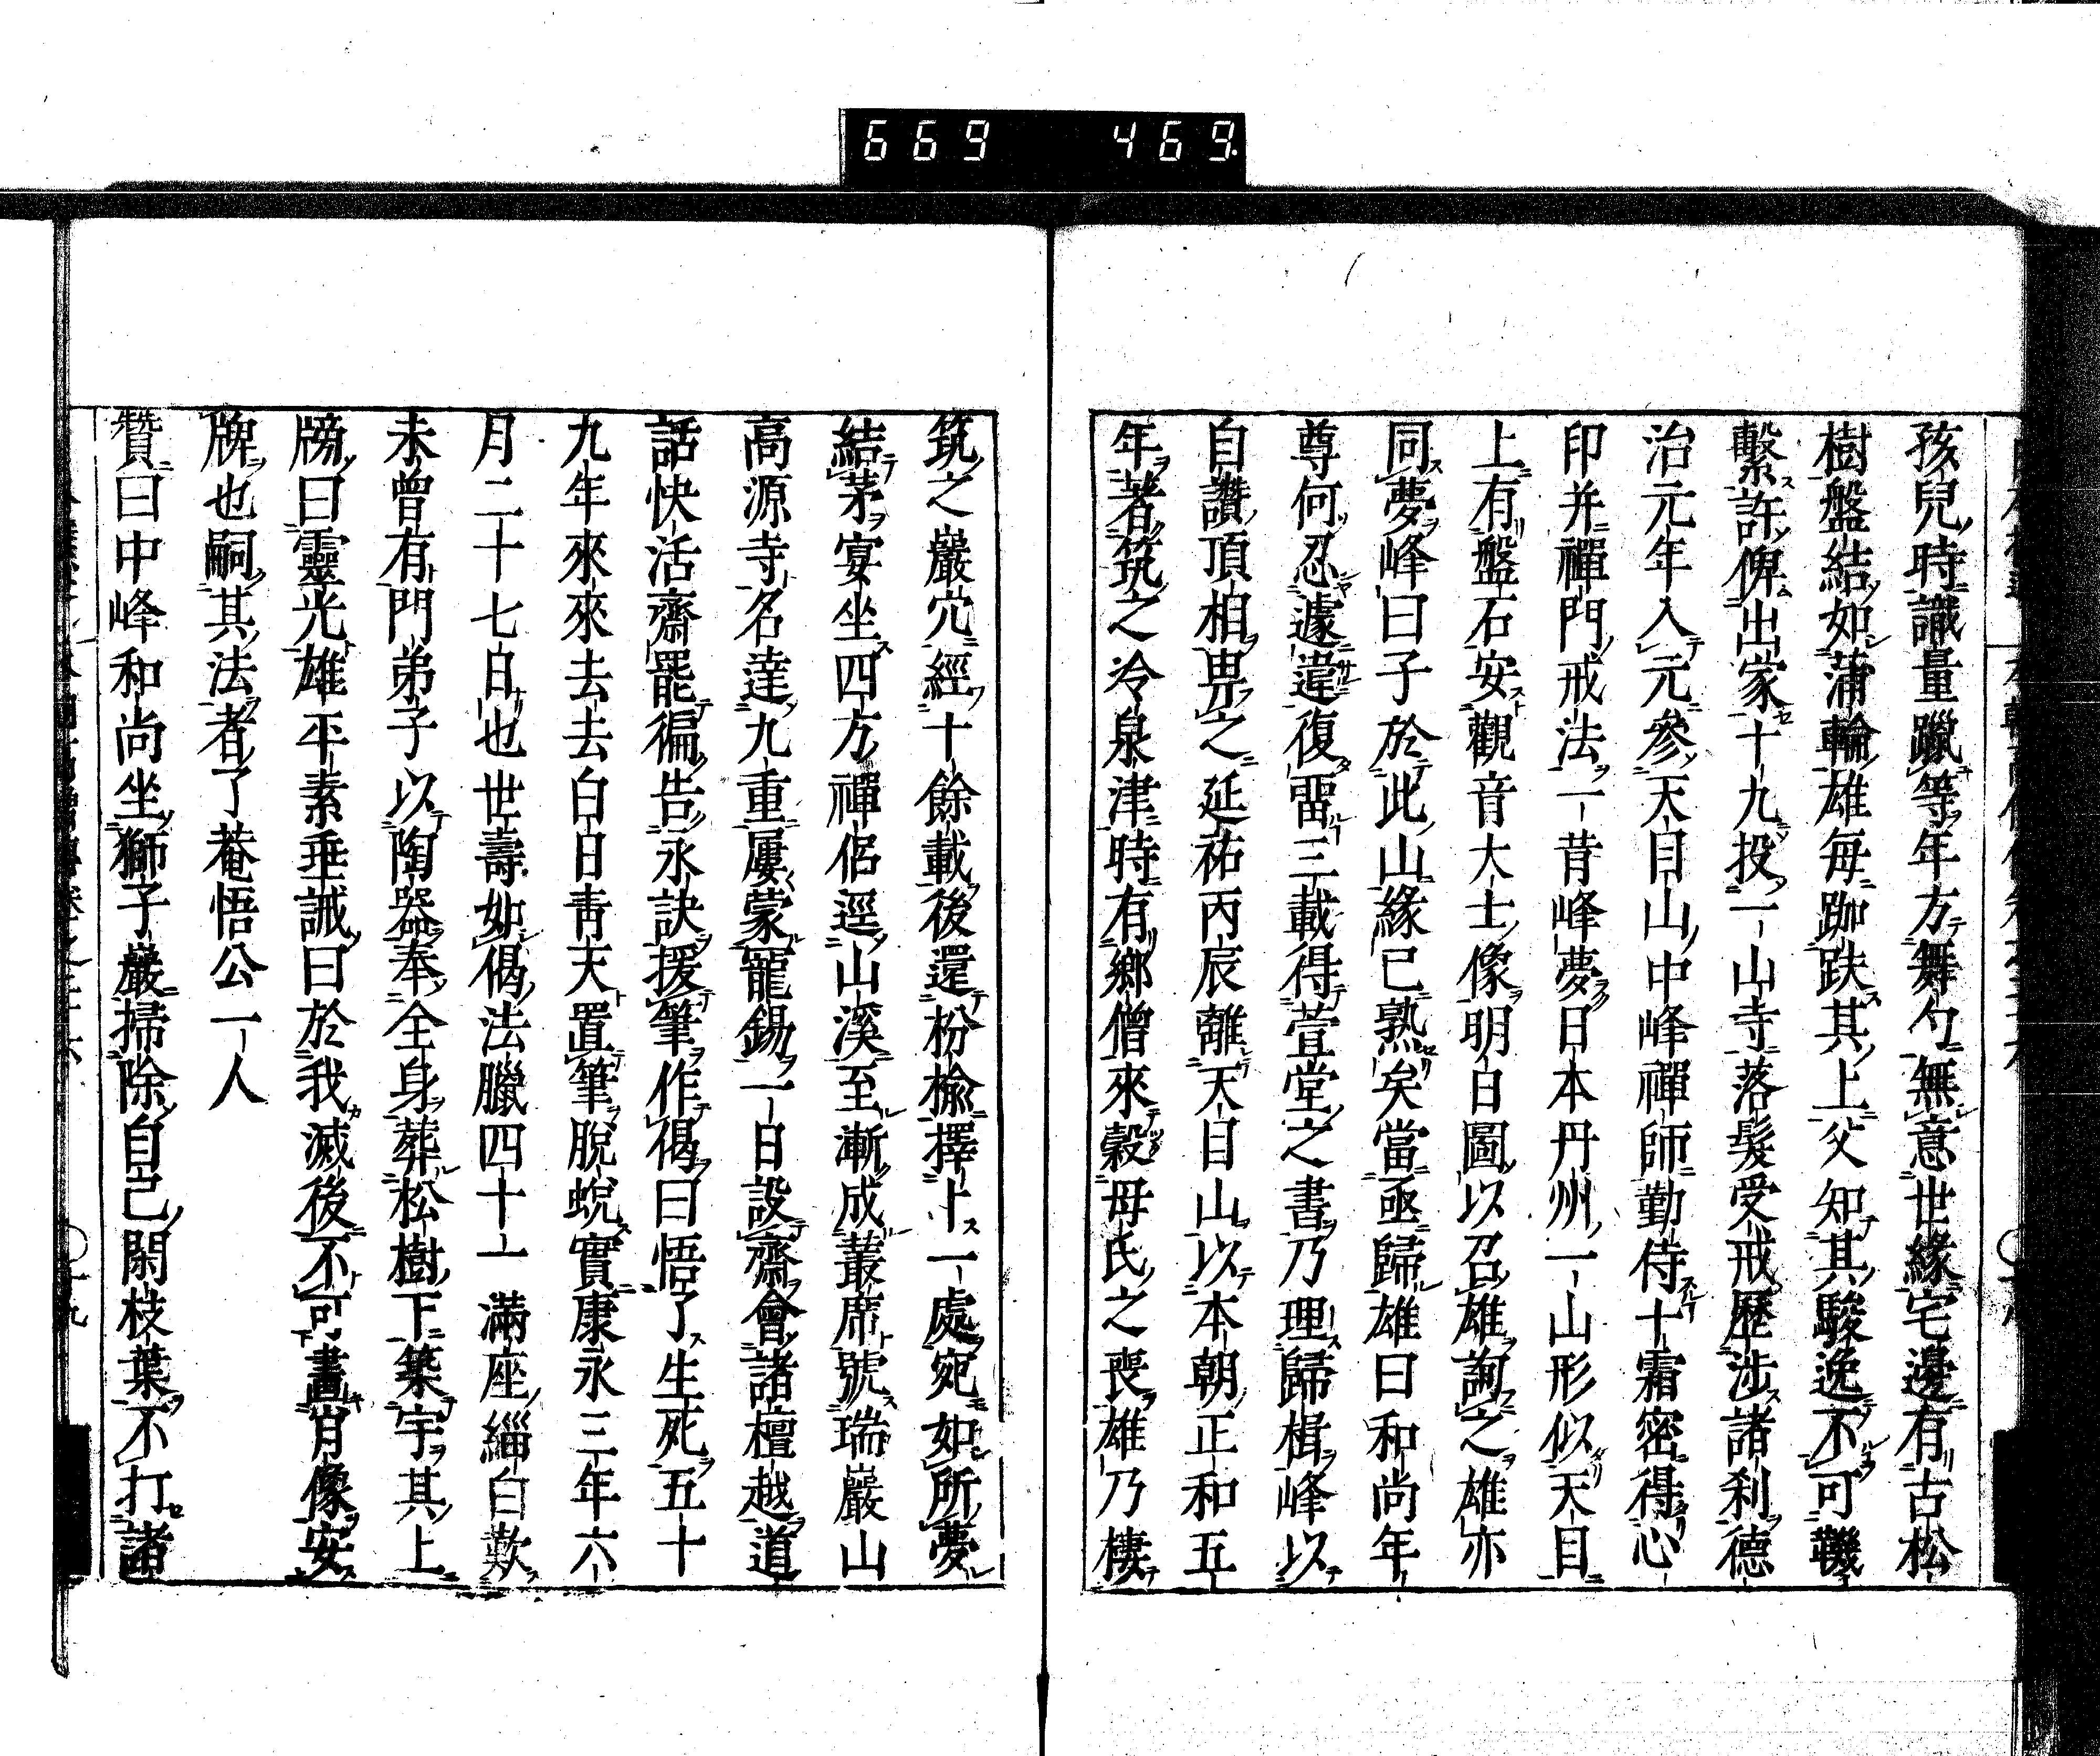 669 469.
孩兒時識量躐等年方舞勺無意世緣宅邊有古松
樹盤結如蒲輪雄每跏趺其上父知其駿逸不可羈
繫許俾出家十九投一山寺落髮受戒歷涉諸刹德
治元年入元參天目山中峰禪師勤侍十霜密得心
印并禪門戒法一昔峰夢日本丹州一山形似天目
上有盤石安觀音大士像明日圖以召雄詢之雄亦
同夢峰曰子於此山緣已熟矣當亟歸雄曰和尚年
尊何忍遽違復畱三載得萱堂之書乃理歸楫峰以
自讚頂相畀之延祐丙辰離天目山以本朝正和五
年著筑之冷泉津時有鄉僧來穀母氏之喪雄乃棲
筑之巖穴經十餘載後還枌榆擇上一處宛如所夢
結茅宴坐四方禪侶逕山溪至漸成叢席號瑞巖山
高源寺名達九重屢蒙寵錫一日設齋會諸檀越道
話快活齋罷徧告永訣援筆作偈曰悟了生死五十
九年來來去去白日青天置筆脫蛻實康永三年六
月二十七日也世壽如偈法臘四十一滿座緇白歎
未曾有門弟子以陶器奉全身葬松樹下築宇其上
牓曰靈光雄平素垂誡曰於我滅後不可畫肖像安
牌也嗣其法者了菴悟公一人
贊曰中峰和尚坐獅子巖掃除自己閑枝葉不打諸